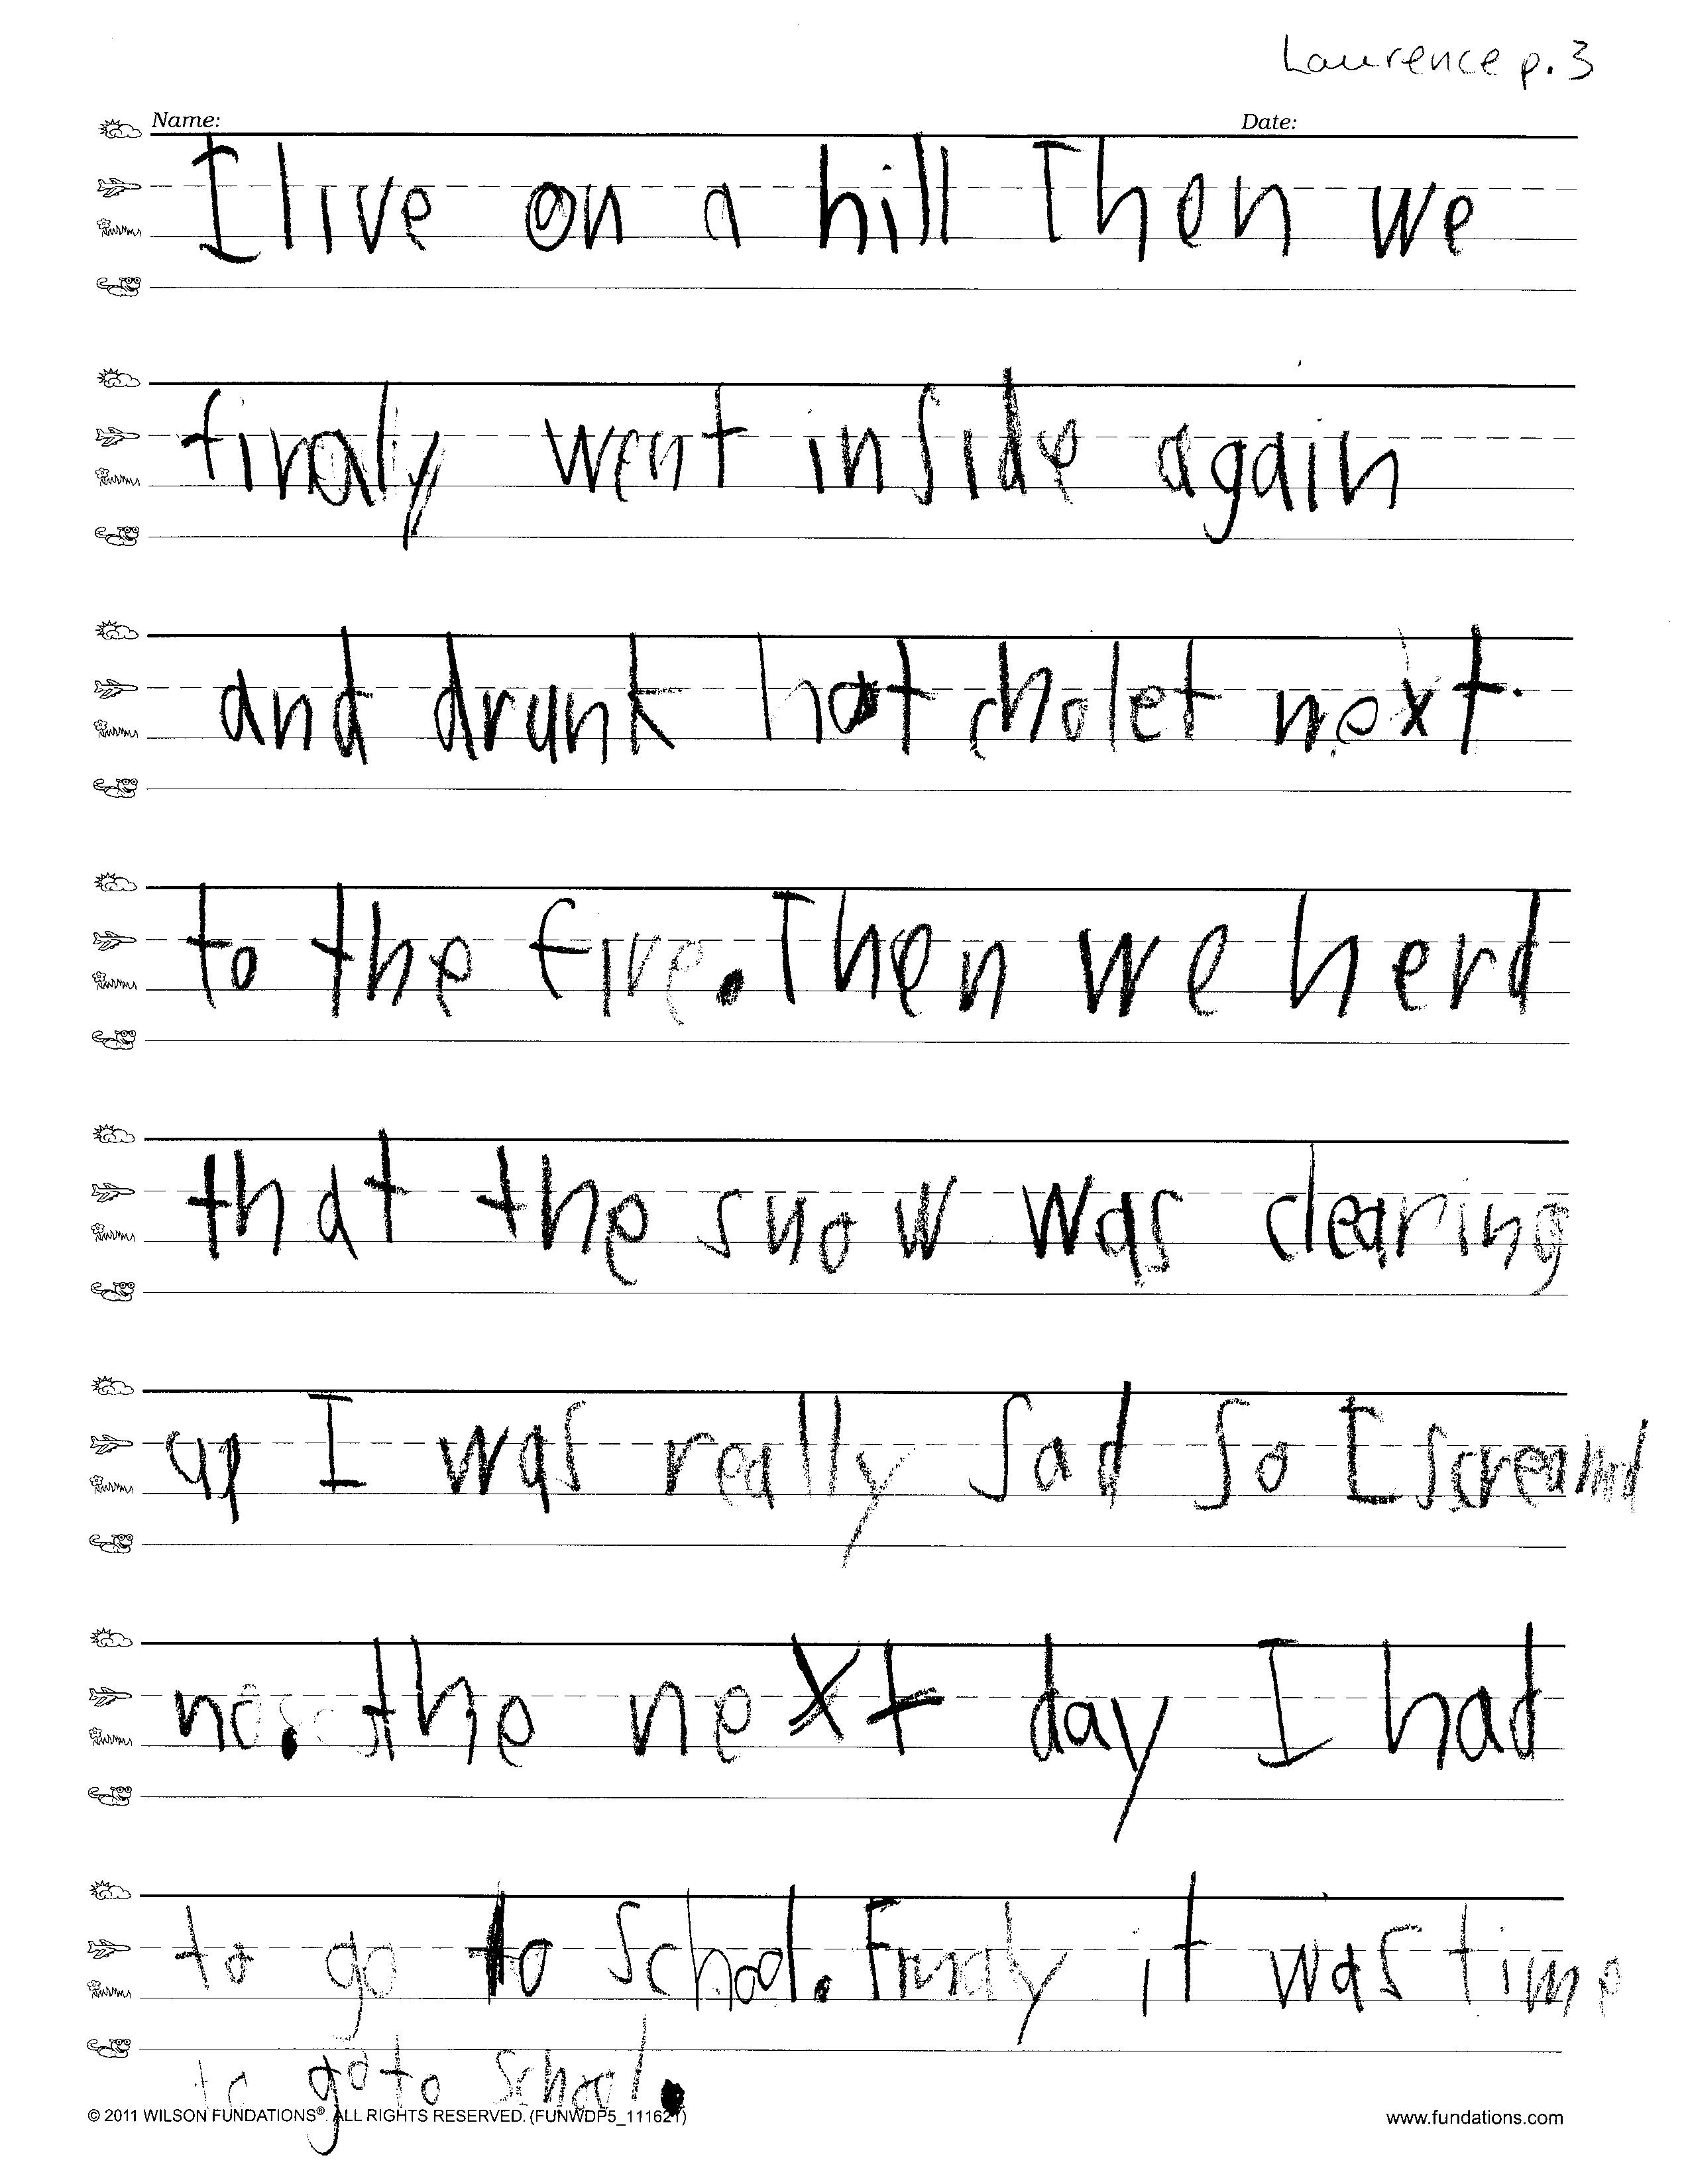 Laurence p. 3
Name: Date:
I live on a hill Then we
finaly went inside again
and drunk hot cholet next.
to the fire. Then we herd
that the snow was clearing
up I was really sad so I screamd
no. the next day I had
to go to school. Finaly it was time
to go to school.
© 2011 WILSON FUNDATIONS®. ALL RIGHTS RESERVED. (FUNWDP5_111621) www.fundations.com